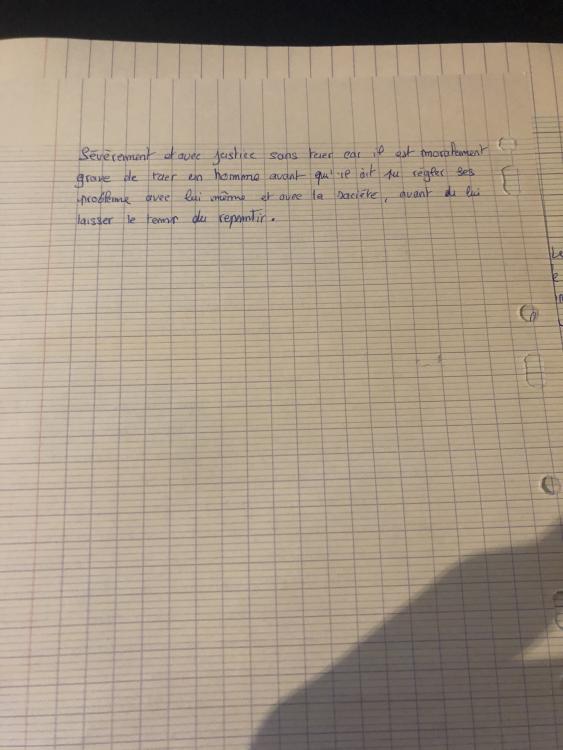 Sévèrement et avec justice sans tuer car il est moralement
grave de tuer un homme avant qu'il ait pu régler ses
problème avec lui même et avec la société, avant de lui
laisser le temps du repentir.